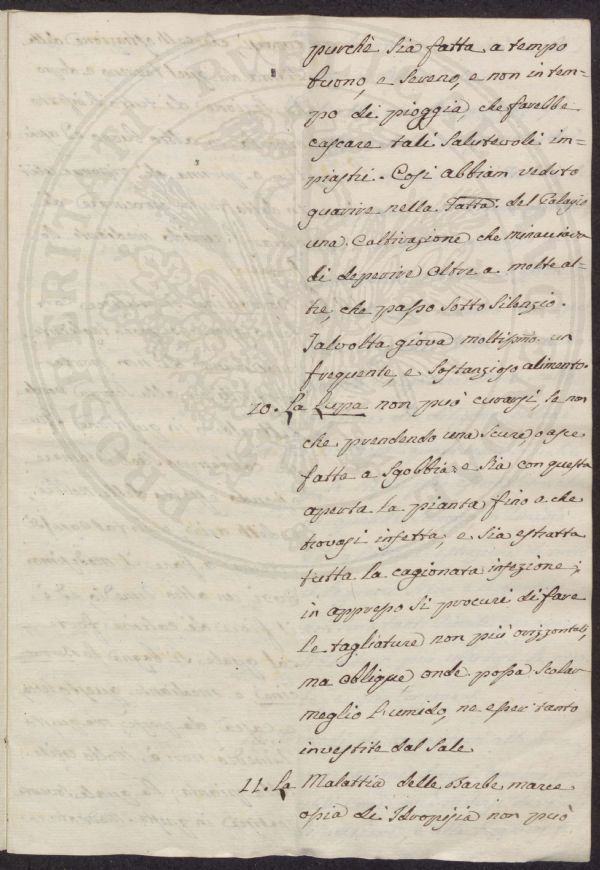 purchè sia fatta a tempo
buono, e sereno, e non in tem=
po di pioggia, che farebbe
cascare tali salutevoli im=
piastri. Così abbiam veduto
guarire nella Fatta: del Palagio
una Coltivazione che minacciava
di deperire oltre a molte al=
tre, che passo sotto silenzio.
Talvolta giova moltissimo un
frequente, e sostanzioso alimento.
10. La Lupa non può curarsi, se non
che prendendo una scure, o asce
fatte a sgobbia: e sia con questa
aperta la pianta fino a che
trovasi infetta, e sia estratta
tutta la cagionata infezione;
in appresso si procuri di fare
le tagliature non più orizzontali,
ma oblique, onde possa scolar
meglio l'umido, ne esser tanto
investite dal Sale
11. La Malattia delle Barbe marce
osia di Idropisia non può